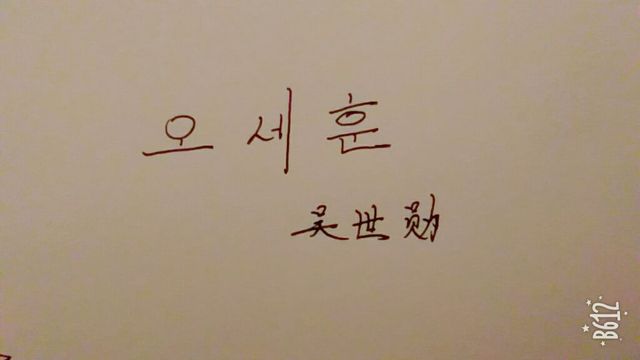 오 세 훈
吴 世 勋
B612